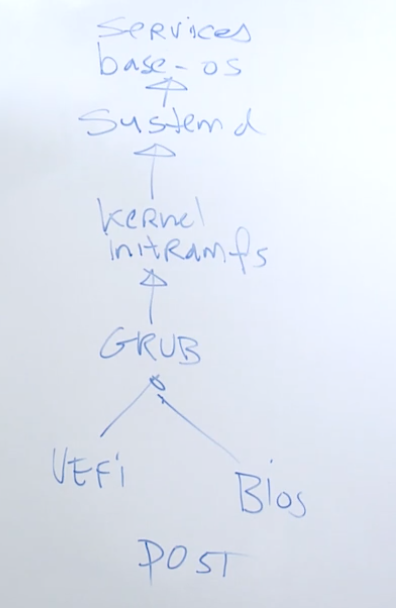 Services
base-os
Systemd
kernel
initRamfs
GRUB
UEFi
Bios
POST